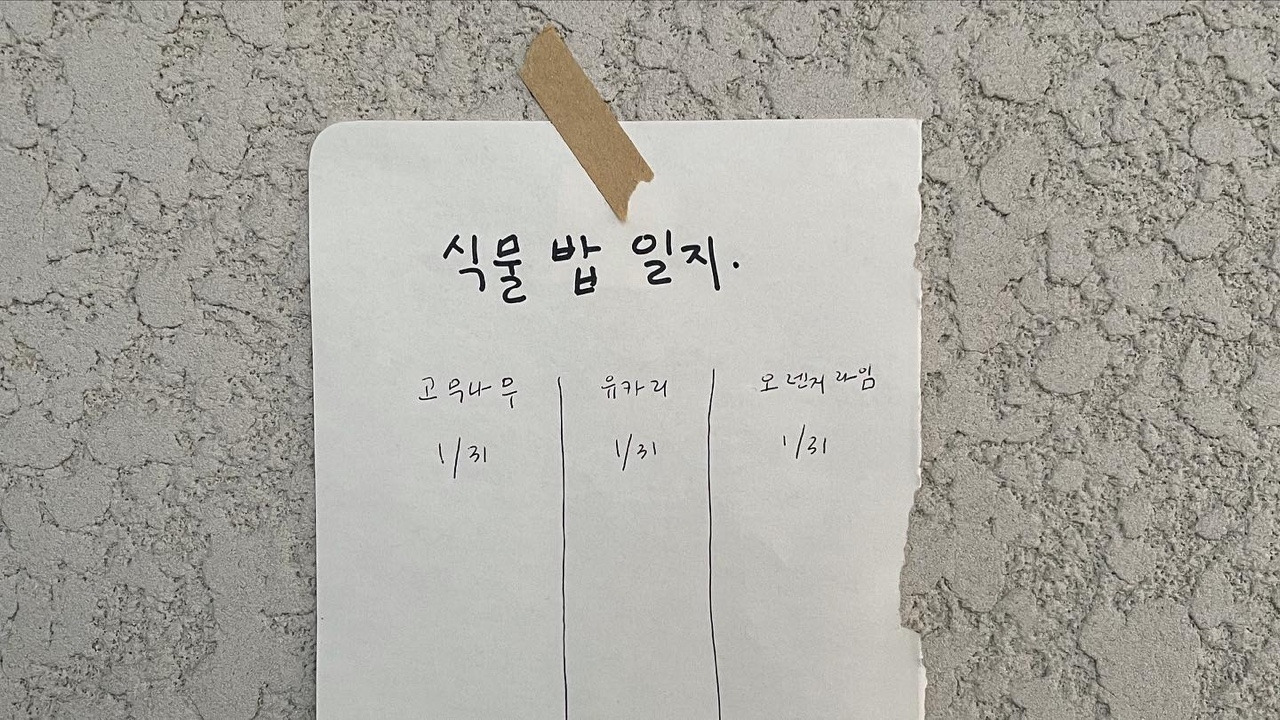 식물 밥 일지.
고무나무 유카리 오렌지라임
1/31 1/31 1/31